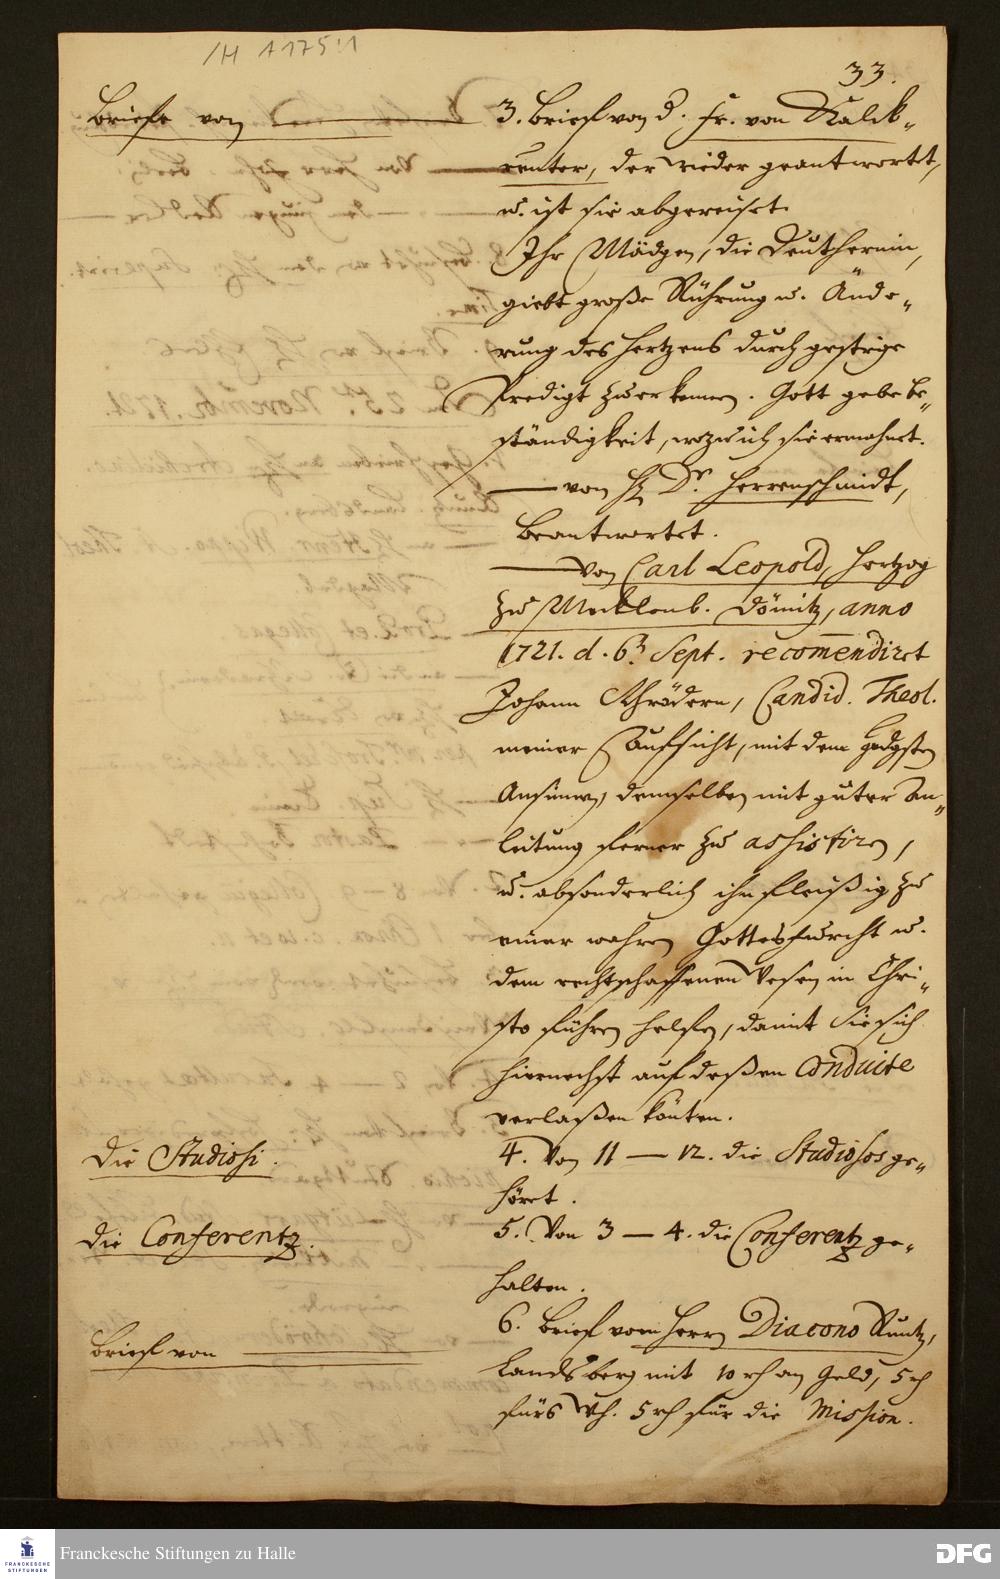 /H A 175:1
33.
Briefe von
3. Brief von d. Fr. von Kalck-
reuter, der wieder geantwortet,
u. ist sie abgereiset.
Ihr Mädgen, die Deutherinn,
giebt große Rührung u. Ände-
rung des Hertzens durch gestrige
Predigt zu erkennen. Gott gebe be-
ständigkeit, wozu ich sie ermahnet.
— von H. Dr. Herrenschmidt,
beantwortet.
— von Carl Leopold, Hertzog
zu Mecklenb. Dömitz, anno
1721. d. 6. Sept. recommendiret
Johann Schrödern, Candid. Theol.
meiner Aufsicht, mit dem gndgsten
Ansinnen, demselben mit guter An-
leitung ferner zu assistiren,
u. absonderlich ihn fleißig zu
einer wahren Gottesfurcht u.
dem rechtschaffenen Wesen in Chri-
sto führen helfen, damit Sie sich
hiernechst auf deßen Conduite
verlaßen könten.
Die Studiosi.
4. Von 11 — 12. die Studiosos ge-
höret.
Die Conferentz.
5. Von 3 — 4. die Conferentz ge-
halten.
Brief von
6. Brief vom Herrn Diacono Kuntz,
Landsberg mit 10 rh an Geld, 5 rh
fürs Wh. 5 rh für die Mission.
Franckesche Stiftungen zu Halle
FRANCKESCHE
STIFTUNGEN
DFG